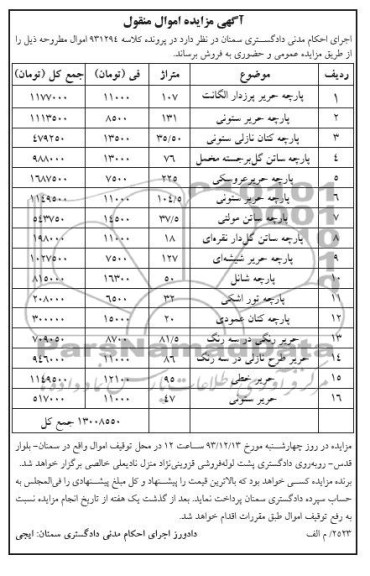 آگهی مزایده اموال منقول
اجرای احکام مدنی دادگستری سمنان در نظر دارد در پرونده کلاسه ۹۳۱۲۹۴ اموال مطروحه ذیل را
از طریق مزایده عمومی و حضوری به فروش برساند.
ردیف موضوع متراژ فی (تومان) جمع کل (تومان)
۱ پارچه حریر پرزدار الگانت ۱۰۷ ۱۱۰۰۰ ۱۱۷۷۰۰۰
۲ پارچه حریر ستونی ۱۳۱ ۸۵۰۰ ۱۱۱۳۵۰۰
۳ پارچه کتان نازلی ستونی ۳۵/۵۰ ۱۳۵۰۰ ۴۷۹۲۵۰
۴ پارچه ساتن گل‌برجسته مخمل ۷۶ ۱۳۰۰۰ ۹۸۸۰۰۰
۵ پارچه حریر عروسکی ۲۲۵ ۷۵۰۰ ۱۶۸۷۵۰۰
۶ پارچه حریر ستونی ۱۰۴/۵ ۱۱۰۰۰ ۱۱۴۹۵۰۰
۷ پارچه ساتن مولتی ۳۷/۵ ۱۴۵۰۰ ۵۴۳۷۵۰
۸ پارچه ساتن گل‌دار نقره‌ای ۱۸ ۱۱۰۰۰ ۱۹۸۰۰۰
۹ پارچه حریر شیشه‌ای ۱۲۷ ۷۵۰۰ ۱۰۲۷۵۰۰
۱۰ پارچه شانل ۵۰ ۱۶۳۰۰ ۸۱۵۰۰۰
۱۱ پارچه تور اشکی ۳۲ ۶۵۰۰ ۲۰۸۰۰۰
۱۲ پارچه کتان عمودی ۲۰ ۱۵۰۰۰ ۳۰۰۰۰۰
۱۳ حریر رنگی در سه رنگ ۸۱/۵ ۸۷۰۰ ۷۰۹۰۵۰
۱۴ حریر طرح نازلی در سه رنگ ۸۶ ۱۱۰۰۰ ۹۴۶۰۰۰
۱۵ حریر خطی ۹۵ ۱۲۱۰۰ ۱۱۴۹۵۰۰
۱۶ حریر ستونی ۴۷ ۱۱۰۰۰ ۵۱۷۰۰۰
۱۳۰۰۸۵۵۰ جمع کل
مزایده در روز چهارشنبه مورخ ۹۳/۱۲/۱۳ ساعت ۱۲ در محل توقیف اموال واقع در سمنان- بلوار
قدس- روبه‌روی دادگستری پشت لوله‌فروشی قزوینی‌نژاد منزل نادیعلی خالصی برگزار خواهد شد.
برنده مزایده کسی خواهد بود که بالاترین قیمت را پیشنهاد و کل مبلغ پیشنهادی را فی‌المجلس به
حساب سپرده دادگستری سمنان پرداخت نماید. بعد از گذشت یک هفته از تاریخ انجام مزایده نسبت
به رفع توقیف اموال طبق مقررات اقدام خواهد شد.
۲۵۲۳/ م الف دادورز اجرای احکام مدنی دادگستری سمنان: ایچی
ParsNamadData